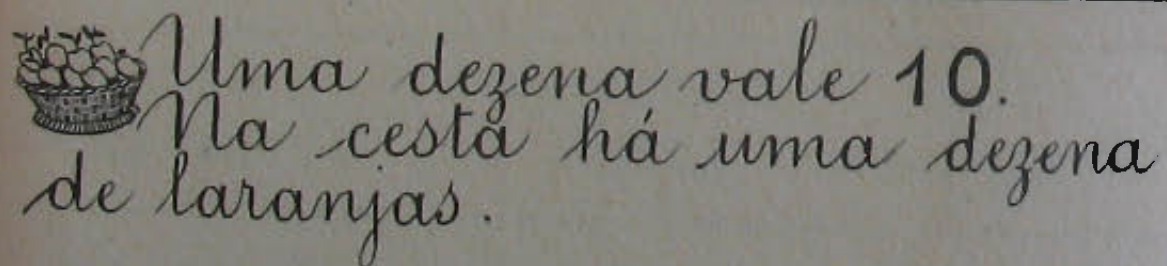 Uma dezena vale 10.
Na cesta há uma dezena
de laranjas.